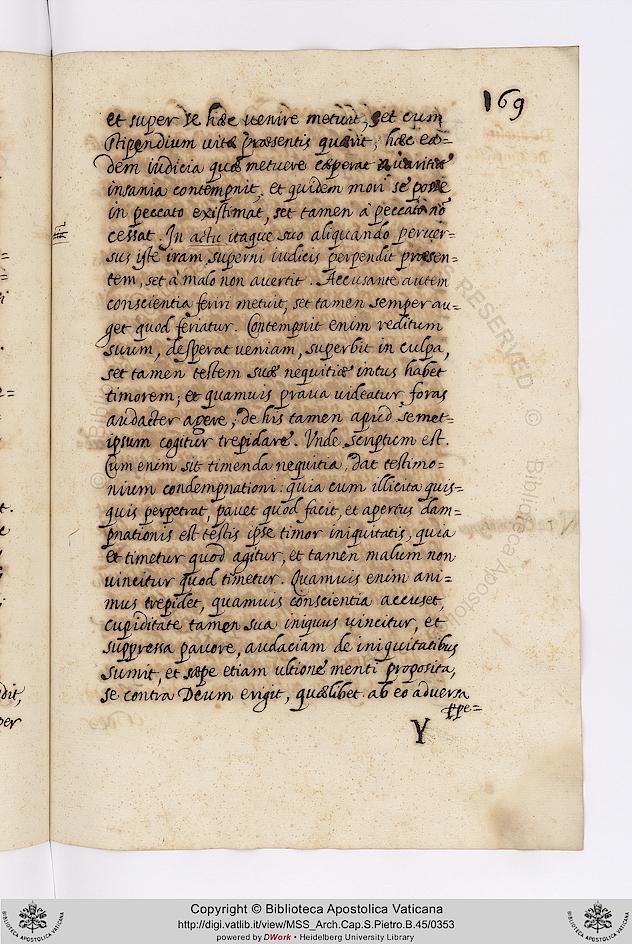 169
et super se hæc uenire metuit, set cum
stipendium uitæ præsentis quærit, hæc ea=
dem iudicia quæ metuere cæperat auaritiæ
insania contempnit, et quidem mori se posse
in peccato existimat, set tamen à peccato nō
cessat. In actu itaque suo aliquando peruer=
sus iste iram superni iudicis perpendit præsen=
tem, set à malo non auertit. Accusante autem
conscientia feriri metuit, set tamen semper au=
get quod feriatur. Contempnit enim reditum
suum, desperat ueniam, superbit in culpa,
set tamen testem suæ nequitiæ intus habet
timorem; et quamuis praua uideatur foras
audacter agere, de his tamen apud semet=
ipsum cogitur trepidare. Vnde scriptum est.
Cum enim sit timenda nequitia, dat testimo=
nium condempnationi: quia cum illicita quis=
quis perpetrat, pauet quod facit, et apertus dam=
pnationis est testis ipse timor iniquitatis, quia
et timetur quod agitur, et tamen malum non
uincitur quod timetur. Quamuis enim ani=
mus trepidet, quamuis conscientia accuset,
cupiditate tamen sua iniquus uincitur, et
suppressa pauore, audaciam de iniquitatibus
sumit, et sæpe etiam ultione menti proposita,
se contra Deum erigit, quælibet ab eo aduersa
ppe=
Y
Copyright © Biblioteca Apostolica Vaticana
http://digi.vatlib.it/view/MSS_Arch.Cap.S.Pietro.B.45/0353
powered by DWork • Heidelberg University Library